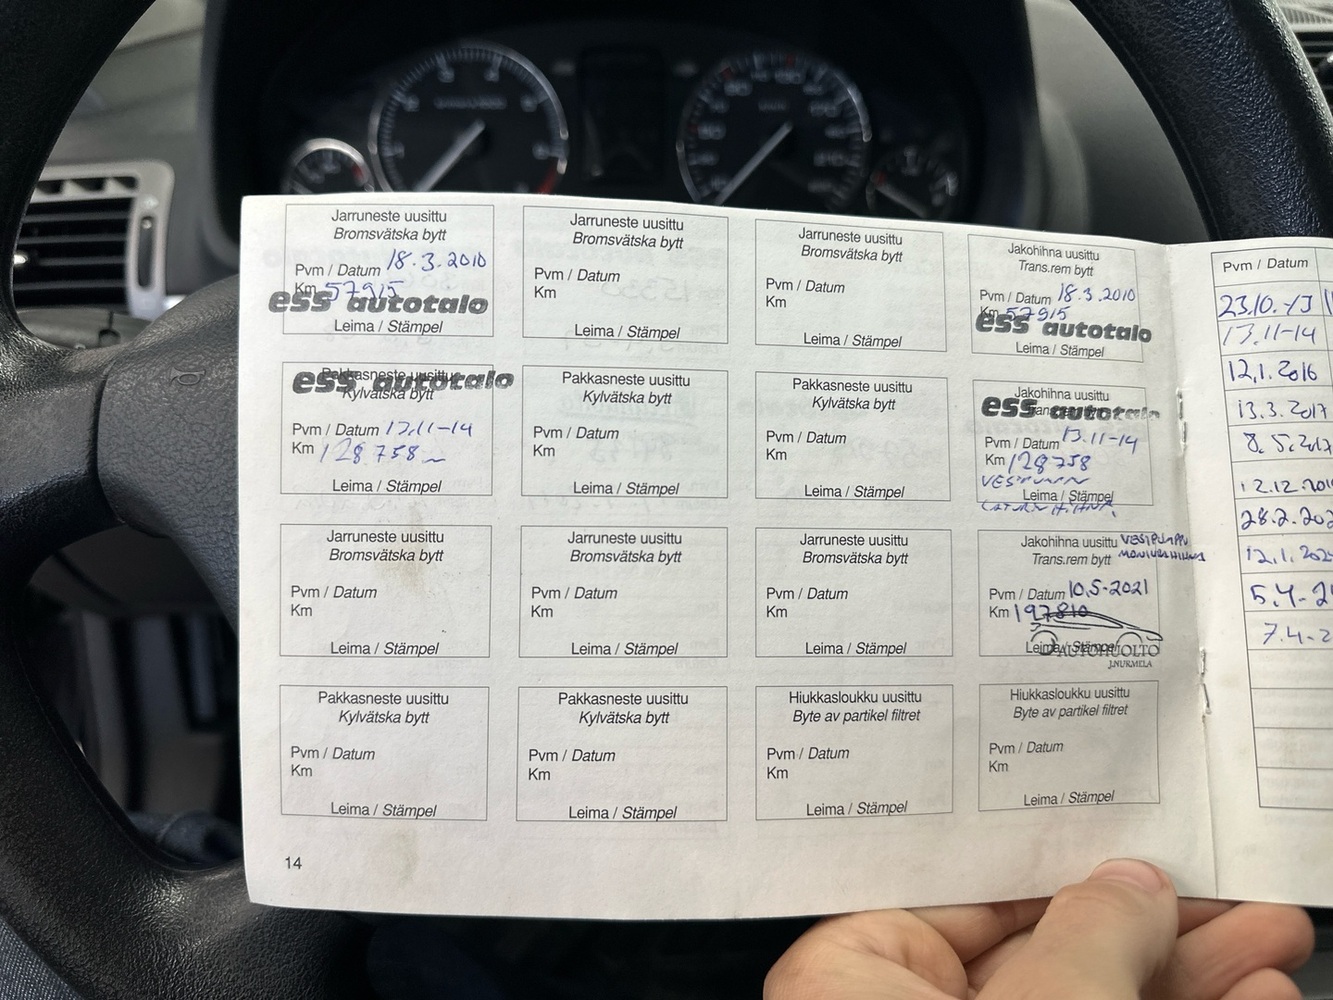 Jarruneste uusittu
Bromsvätska bytt
Pvm / Datum 18.3.2010
Km 57915
ess autotalo
Leima / Stämpel
Jarruneste uusittu
Bromsvätska bytt
Pvm / Datum
Km
Leima / Stämpel
Jarruneste uusittu
Bromsvätska bytt
Pvm / Datum
Km
Leima / Stämpel
Jakohihna uusittu
Trans.rem bytt
Pvm / Datum 18.3.2010
Km 57915
ess autotalo
Leima / Stämpel
Pakkasneste uusittu
ess autotalo
Kylvätska bytt
Pvm / Datum 13.11-14
Km 128758
Leima / Stämpel
Pakkasneste uusittu
Kylvätska bytt
Pvm / Datum
Km
Leima / Stämpel
Pakkasneste uusittu
Kylvätska bytt
Pvm / Datum
Km
Leima / Stämpel
Jakohihna uusittu
ess autotalo
Trans.rem bytt
Pvm / Datum 13.11-14
Km 128758
Leima / Stämpel
Jarruneste uusittu
Bromsvätska bytt
Pvm / Datum
Km
Leima / Stämpel
Jarruneste uusittu
Bromsvätska bytt
Pvm / Datum
Km
Leima / Stämpel
Jarruneste uusittu
Bromsvätska bytt
Pvm / Datum
Km
Leima / Stämpel
Jakohihna uusittu VESIPUMPPU
Trans.rem bytt
Pvm / Datum 10.5-2021
Km 197810
Leima / Stämpel
AUTOHUOLTO
J.NURMELA
Pakkasneste uusittu
Kylvätska bytt
Pvm / Datum
Km
Leima / Stämpel
Pakkasneste uusittu
Kylvätska bytt
Pvm / Datum
Km
Leima / Stämpel
Hiukkasloukku uusittu
Byte av partikel filtret
Pvm / Datum
Km
Leima / Stämpel
Hiukkasloukku uusittu
Byte av partikel filtret
Pvm / Datum
Km
Leima / Stämpel
14
Pvm / Datum
23.10.-13
13.11-14
12.1.2016
13.3.2017